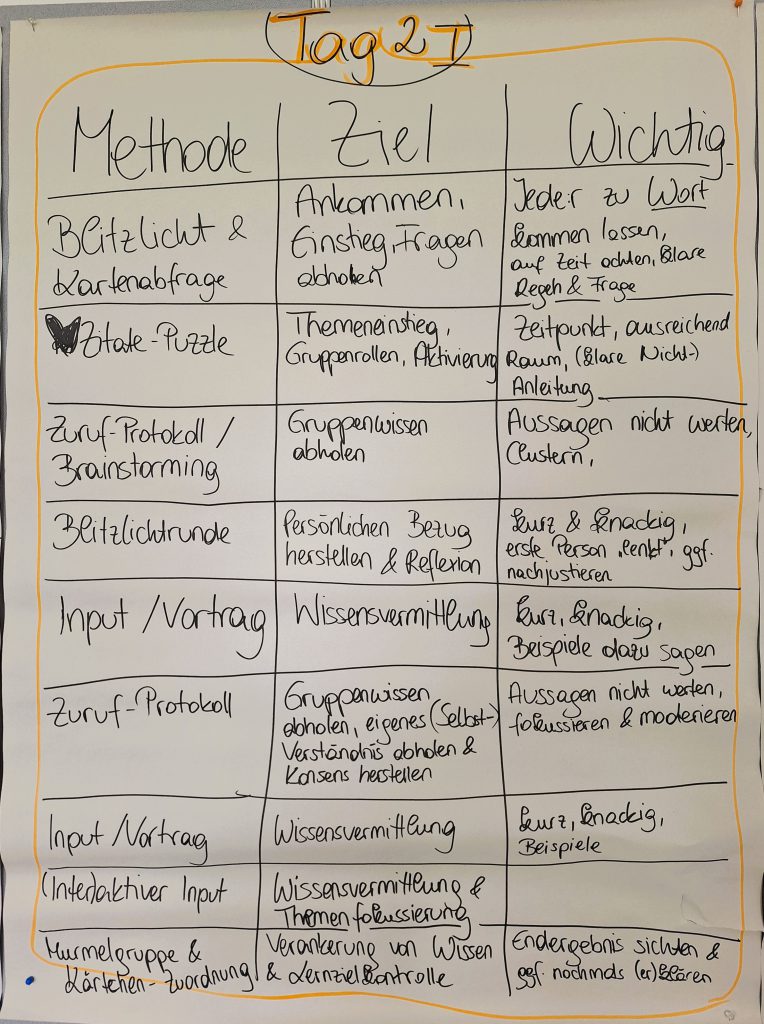 Tag 2 I
Methode
Ziel
Wichtig
Blitzlicht &
Kartenabfrage
Ankommen,
Einstieg, Fragen
abholen
Jede:r zu Wort
kommen lassen,
auf Zeit achten, klare
Regeln & Frage
Zitate-Puzzle
Themeneinstieg,
Gruppenrollen, Aktivierung
Zeitpunkt, ausreichend
Raum, (klare Nicht-)
Anleitung
Zuruf-Protokoll /
Brainstorming
Gruppenwissen
abholen
Aussagen nicht werten,
Clustern,
Blitzlichtrunde
Persönlichen Bezug
herstellen & Reflexion
kurz & knackig,
erste Person „lenkt“, ggf.
nachjustieren
Input / Vortrag
Wissensvermittlung
kurz, knackig,
Beispiele dazu sagen
Zuruf-Protokoll
Gruppenwissen
abholen, eigenes (Selbst-)
Verständnis abholen &
Konsens herstellen
Aussagen nicht werten,
fokussieren & moderieren
Input / Vortrag
Wissensvermittlung
kurz, knackig,
Beispiele
(Inter)aktiver Input
Wissensvermittlung &
Themenfokussierung
Murmelgruppe &
Kärtchen-Zuordnung
Verankerung von Wissen
& Lernzielkontrolle
Endergebnis sichten &
ggf. nochmals (er)klären